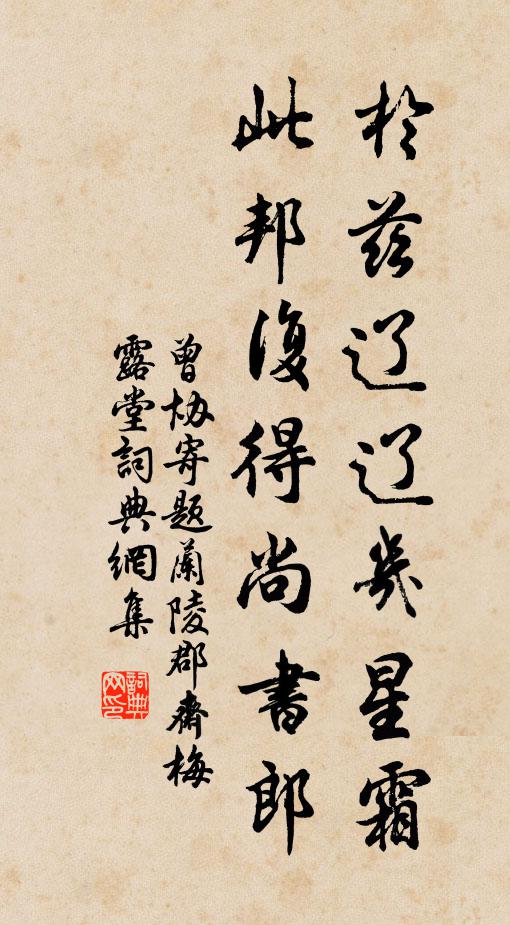 於茲辽辽幾星霜
此邦復得尚書郎
曾协寄题蘭陵郡齋梅
露堂詞典網集
詞典網印